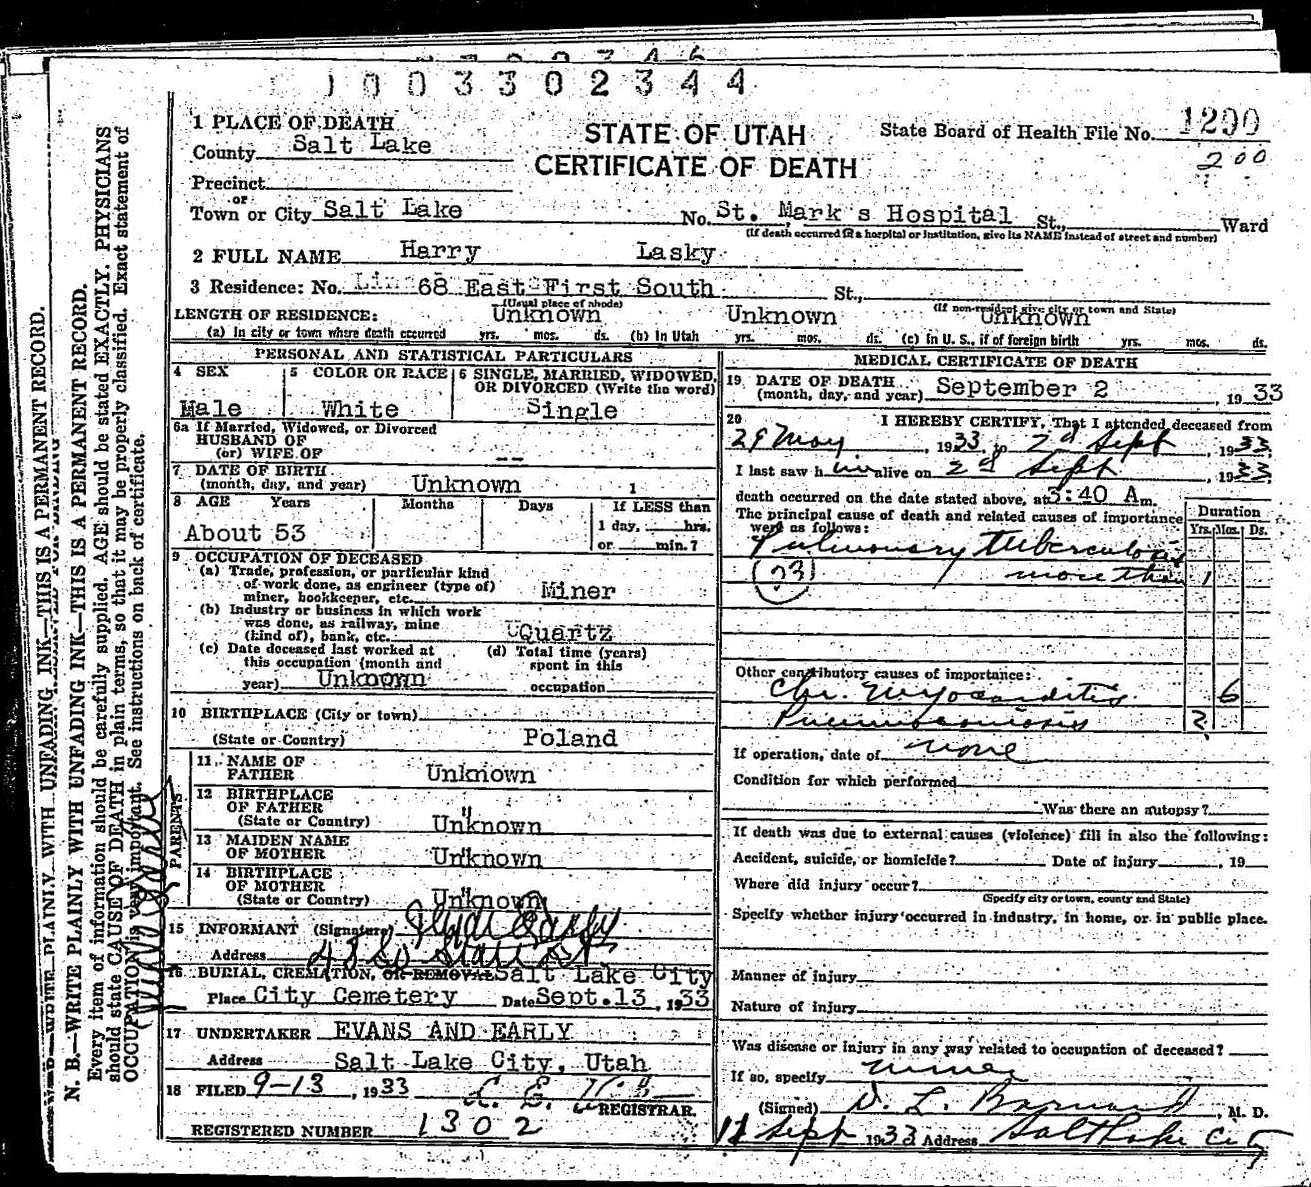 1003302344
1 PLACE OF DEATH
County Salt Lake
STATE OF UTAH
CERTIFICATE OF DEATH
State Board of Health File No. 1290
200
Precinct
or
Town or City Salt Lake No. St. Mark's Hospital St., Ward
(If death occurred in a hospital or institution, give its NAME instead of street and number)
2 FULL NAME Harry Lasky
3 Residence: No. 68 East First South St.,
(Usual place of abode) (If non-resident give city or town and State)
LENGTH OF RESIDENCE: Unknown Unknown Unknown
(a) In city or town where death occurred yrs. mos. ds. (b) In Utah yrs. mos. ds. (c) In U. S., if of foreign birth yrs. mos. ds.
PERSONAL AND STATISTICAL PARTICULARS
4 SEX 5 COLOR OR RACE 6 SINGLE, MARRIED, WIDOWED, OR DIVORCED (Write the word)
Male White Single
6a If Married, Widowed, or Divorced
HUSBAND OF
(or) WIFE OF --
7 DATE OF BIRTH
(month, day, and year) Unknown 1
8 AGE Years Months Days If LESS than
About 53 1 day, hrs.
or min.?
9 OCCUPATION OF DECEASED
(a) Trade, profession, or particular kind
of work done, as engineer (type of)
miner, bookkeeper, etc. Miner
(b) Industry or business in which work
was done, as railway, mine
(kind of), bank, etc. Quartz
(c) Date deceased last worked at (d) Total time (years)
this occupation (month and spent in this
year) Unknown occupation
10 BIRTHPLACE (City or town)
(State or Country) Poland
PARENTS
11 NAME OF
FATHER Unknown
12 BIRTHPLACE
OF FATHER
(State or Country) Unknown
13 MAIDEN NAME
OF MOTHER Unknown
14 BIRTHPLACE
OF MOTHER
(State or Country) Unknown
15 INFORMANT (Signature)
Address 48 So State St
16 BURIAL, CREMATION, OR REMOVAL Salt Lake City
Place City Cemetery Date Sept. 13, 1933
17 UNDERTAKER EVANS AND EARLY
Address Salt Lake City, Utah
18 FILED 9-13, 1933
REGISTRAR.
REGISTERED NUMBER 1302
MEDICAL CERTIFICATE OF DEATH
19 DATE OF DEATH
(month, day, and year) September 2, 1933
20 I HEREBY CERTIFY, That I attended deceased from
29 May, 1933, to 2d Sept, 1933
I last saw him alive on 2d Sept, 1933
death occurred on the date stated above, at 3:40 A m.
The principal cause of death and related causes of importance
were as follows:
Duration
Yrs. Mos. Ds.
Pulmonary tuberculosis
(23) more than 1
Other contributory causes of importance:
Chr. Myocarditis 6
Pneumoconiosis 2
If operation, date of none
Condition for which performed
Was there an autopsy?
If death was due to external causes (violence) fill in also the following:
Accident, suicide, or homicide? Date of injury, 19
Where did injury occur?
(Specify city or town, county and State)
Specify whether injury occurred in industry, in home, or in public place.
Manner of injury
Nature of injury
Was disease or injury in any way related to occupation of deceased?
If so, specify miner
(Signed) D. L. Barnard, M. D.
11 Sept 1933 Address Salt Lake City
N. B.—WRITE PLAINLY WITH UNFADING INK—THIS IS A PERMANENT RECORD.
Every item of information should be carefully supplied. AGE should be stated EXACTLY. PHYSICIANS
should state CAUSE OF DEATH in plain terms, so that it may be properly classified. Exact statement of
OCCUPATION is very important. See instructions on back of certificate.